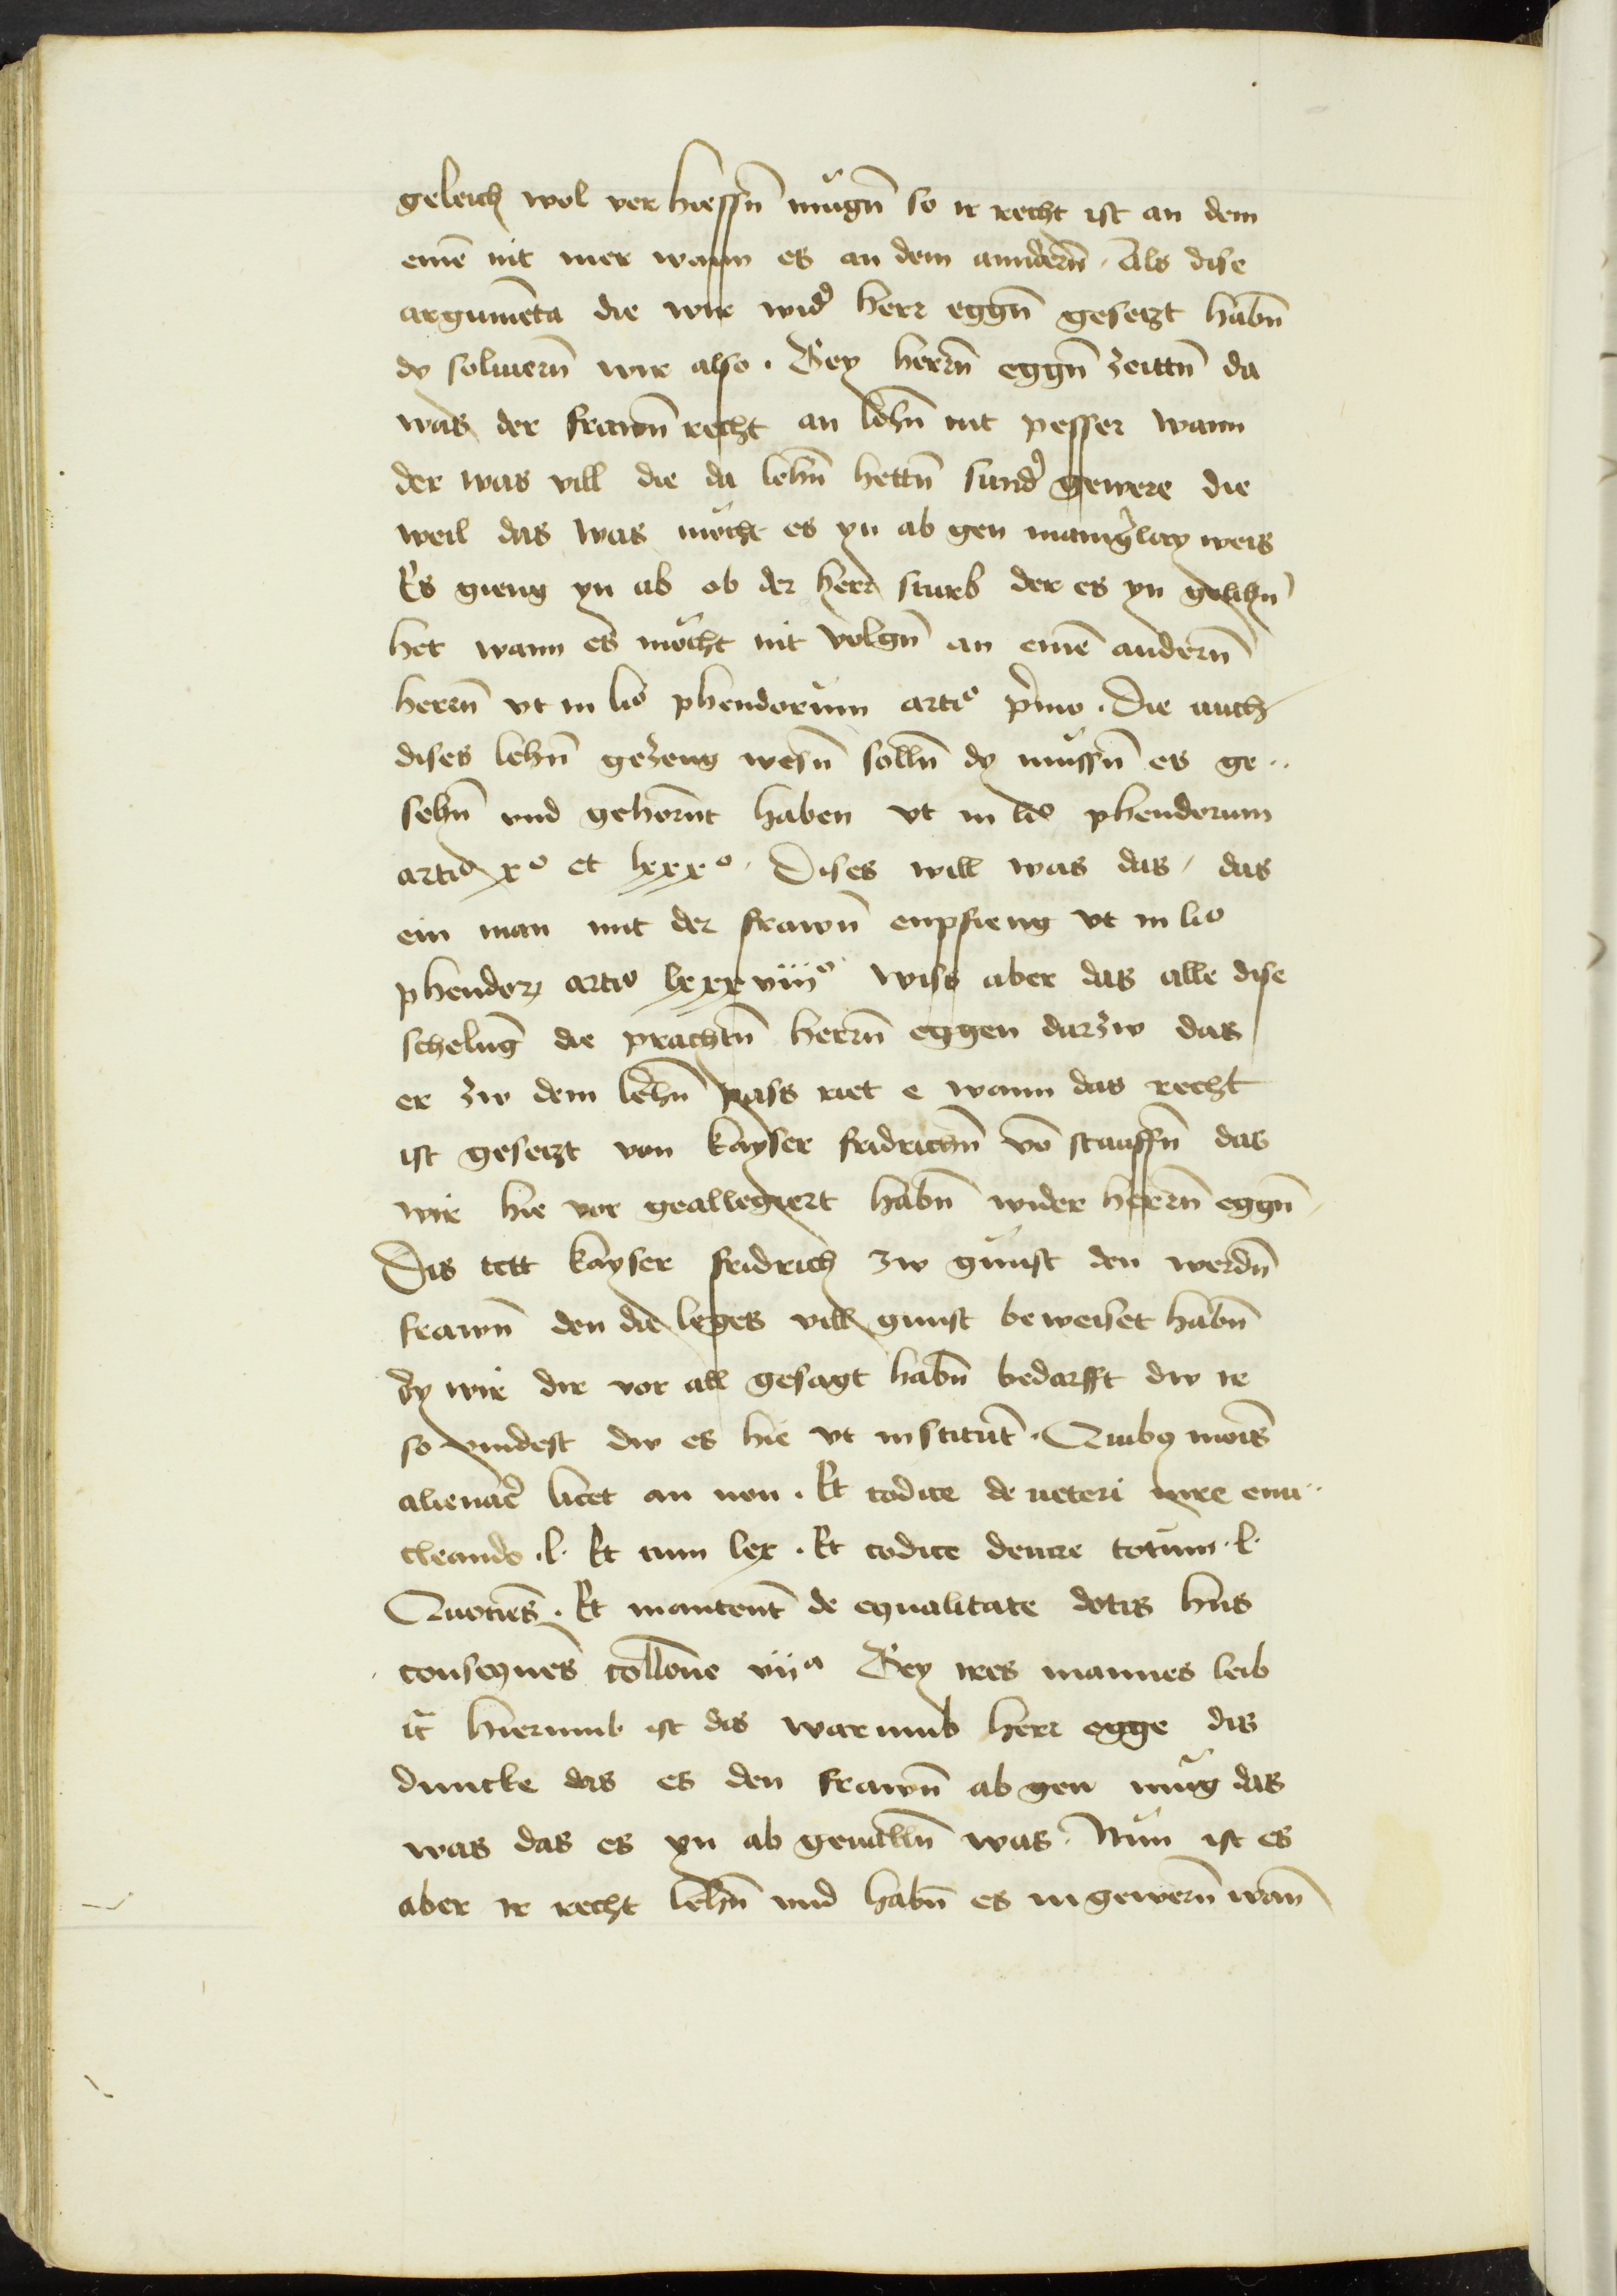 geleich wol ver hiessn̄ mügn̄ so ir recht ist an dem
einē nit mer wann es an dem anndern̄. Als dise
argumēta die wir wid̄ herr eggn̄ gesetzt habn̄
dy soluiern̄ wir also. Bey herrn̄ eggn̄ zeittn̄ da
was der frawn̄ recht an lehn̄ nit pesser wann
der was vill die da lehn̄ hettn̄ sund̄ gewere die
weil das was möcht es yn ab gen maniḡlay weis
Es gieng yn ab ob der herr sturb der es yn gelihn̄
het wann es möcht nit volgn̄ an einē andern̄
herrn̄ vt in lio phendorum artio p̄mo. die auch
dises lehn̄ gezeug wesn̄ solln̄ dy müssn̄ es ge..
sehn̄ vnd gehornt haben vt in lio phendorum
artio xo et lxxxo. Dises vill was das, das
ein man mit der frawn̄ enpfieng vt in lio
phendorꝫ artio lxxxviiio wiss aber das alle dise
schelūg die prachtn̄ herrn̄ eggen darzw das
er zw dem lehn̄ pass riet e wann das recht
ist gesetzt von kayser fridrichn̄ vō stauffn̄ das
wir hie vor geallegiert habn̄ wider herrn̄ eggn̄
Dis tett kayser fridrich zw gunst den werdn̄
frawn̄ den die leges vill gunst beweiset habn̄
dy wir dir vor all gesagt habn̄ bedarfft dw ir
so vindest dw es hie vt institut̄. Quibꝯ mois̄
alienar̄ licet an non. Et codice de ueteri iure enu..
cleando .l. Et cum lex. Et codice deuere totum .l.
Quoties̄. Et in autent̄ de equalitate dotis hn̄s
consequēs collōne viia Bey ires mannes leib
it̄ hierumb ist das warumb herr egge dis
duncke das es den frawn̄ ab gen müg das
was das es yn ab geualln̄ was. Nun ist es
aber ir recht lehn̄ vnd habn̄ es in gewern̄ wan̄